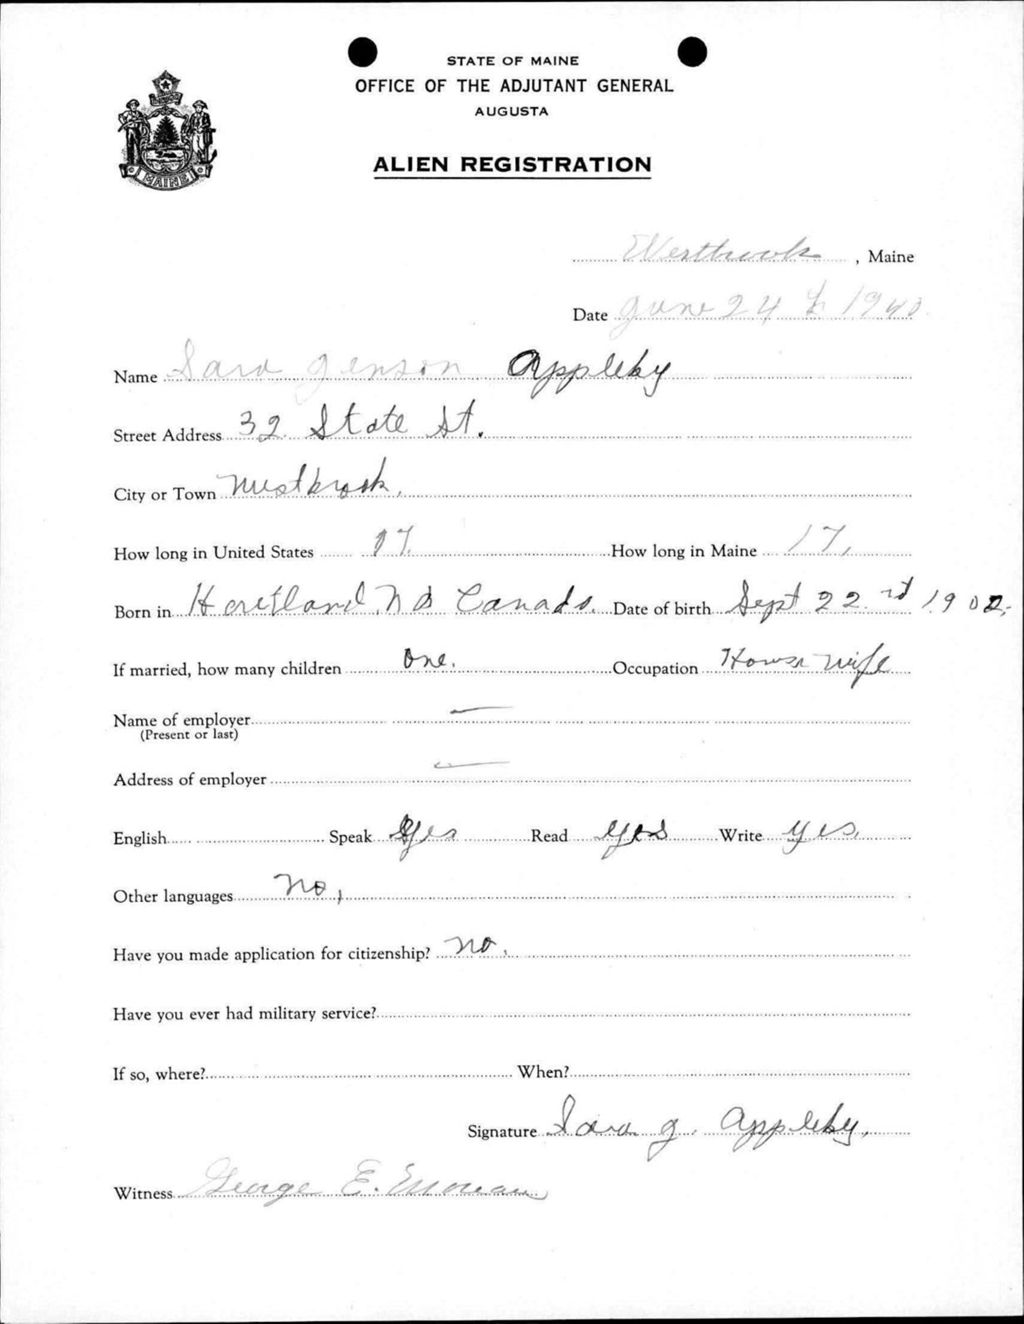 STATE OF MAINE
OFFICE OF THE ADJUTANT GENERAL
AUGUSTA
ALIEN REGISTRATION
MAINE
Westbrook, Maine
Date June 24 1940
Name Sara Jenson Appleby
Street Address 32 State St.
City or Town Westbrook.
How long in United States 17. How long in Maine 17,
Born in Hartland, N B Canada. Date of birth Sept 22nd 1902.
If married, how many children One. Occupation House wife
Name of employer —
(Present or last)
Address of employer —
English Speak Yes Read yes Write yes,
Other languages No,
Have you made application for citizenship? No.
Have you ever had military service?
If so, where? When?
Signature Sara J. Appleby,
Witness George E.